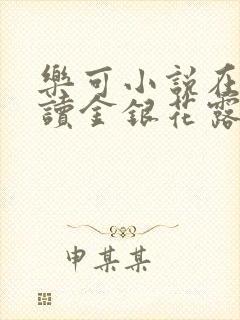 樂可小說在
讀金銀花露
申某某